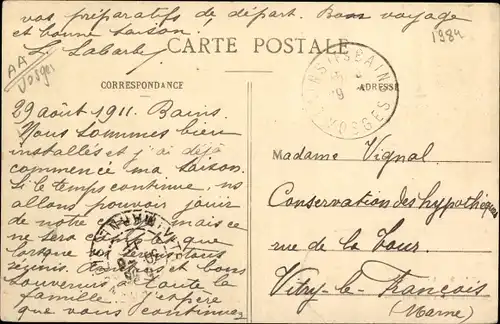 vos préparatifs de départ. Bon voyage
et bonne saison.
L. Labarbe
CARTE POSTALE
1984
AA
Vosges
CORRESPONDANCE
ADRESSE
BAINS-LES-BAINS
VOSGES
29 août 1911. Bains.
Nous sommes bien
installés et j'ai déjà
commencé ma saison.
Si le temps continue, ns
allons pouvoir jouir
de notre mais ce
ne sera que
lorsque ns serons tous
réunis. et bons
souvenirs à toute la
famille. J'espère
que vous continuez
Madame Vignal
Conservation des hypothèques
rue de la Tour
Vitry-le-François
(Marne)